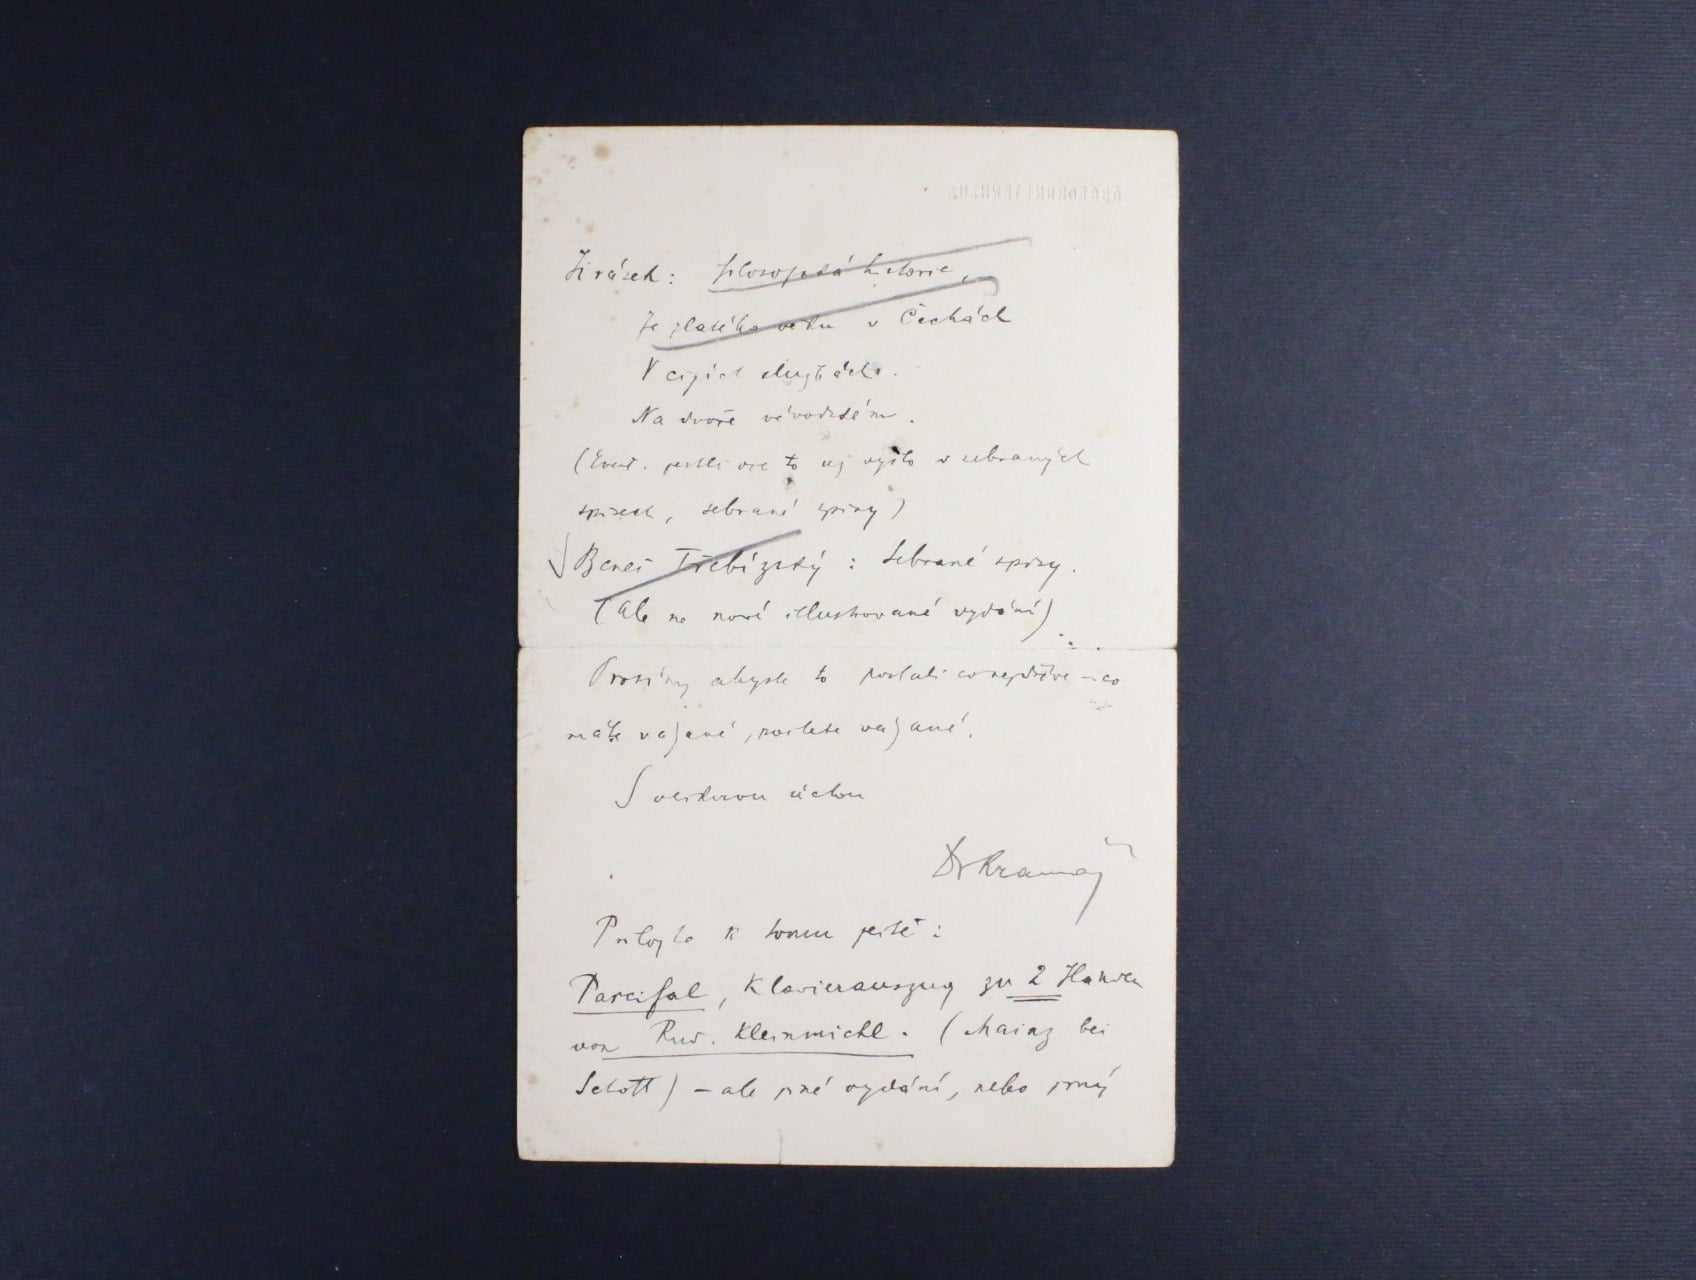 ABGEORDNETENHAUS
Jirásek: filosofská historie,
Ze zlatého věku v Čechách
V cizích službách.
Na dvoře vévodském.
(Event. jestli vse to uz vyšlo v sebraných
spisech, sebrané spisy)
Beneš Třebízský: Sebrané spisy.
(ale ne nové illustrované vydání)
Prosíme abyste to poslali co nejdříve – co
máte vázané, pošlete vázané.
S veškerou úctou
Dr Kramář
Přiložte k tomu ještě:
Parcifal, Klavierauszug zu 2 Händen
von Rud. Kleinmichl. (Mainz bei
Schott) – ale jiné vydání, nebo jiný